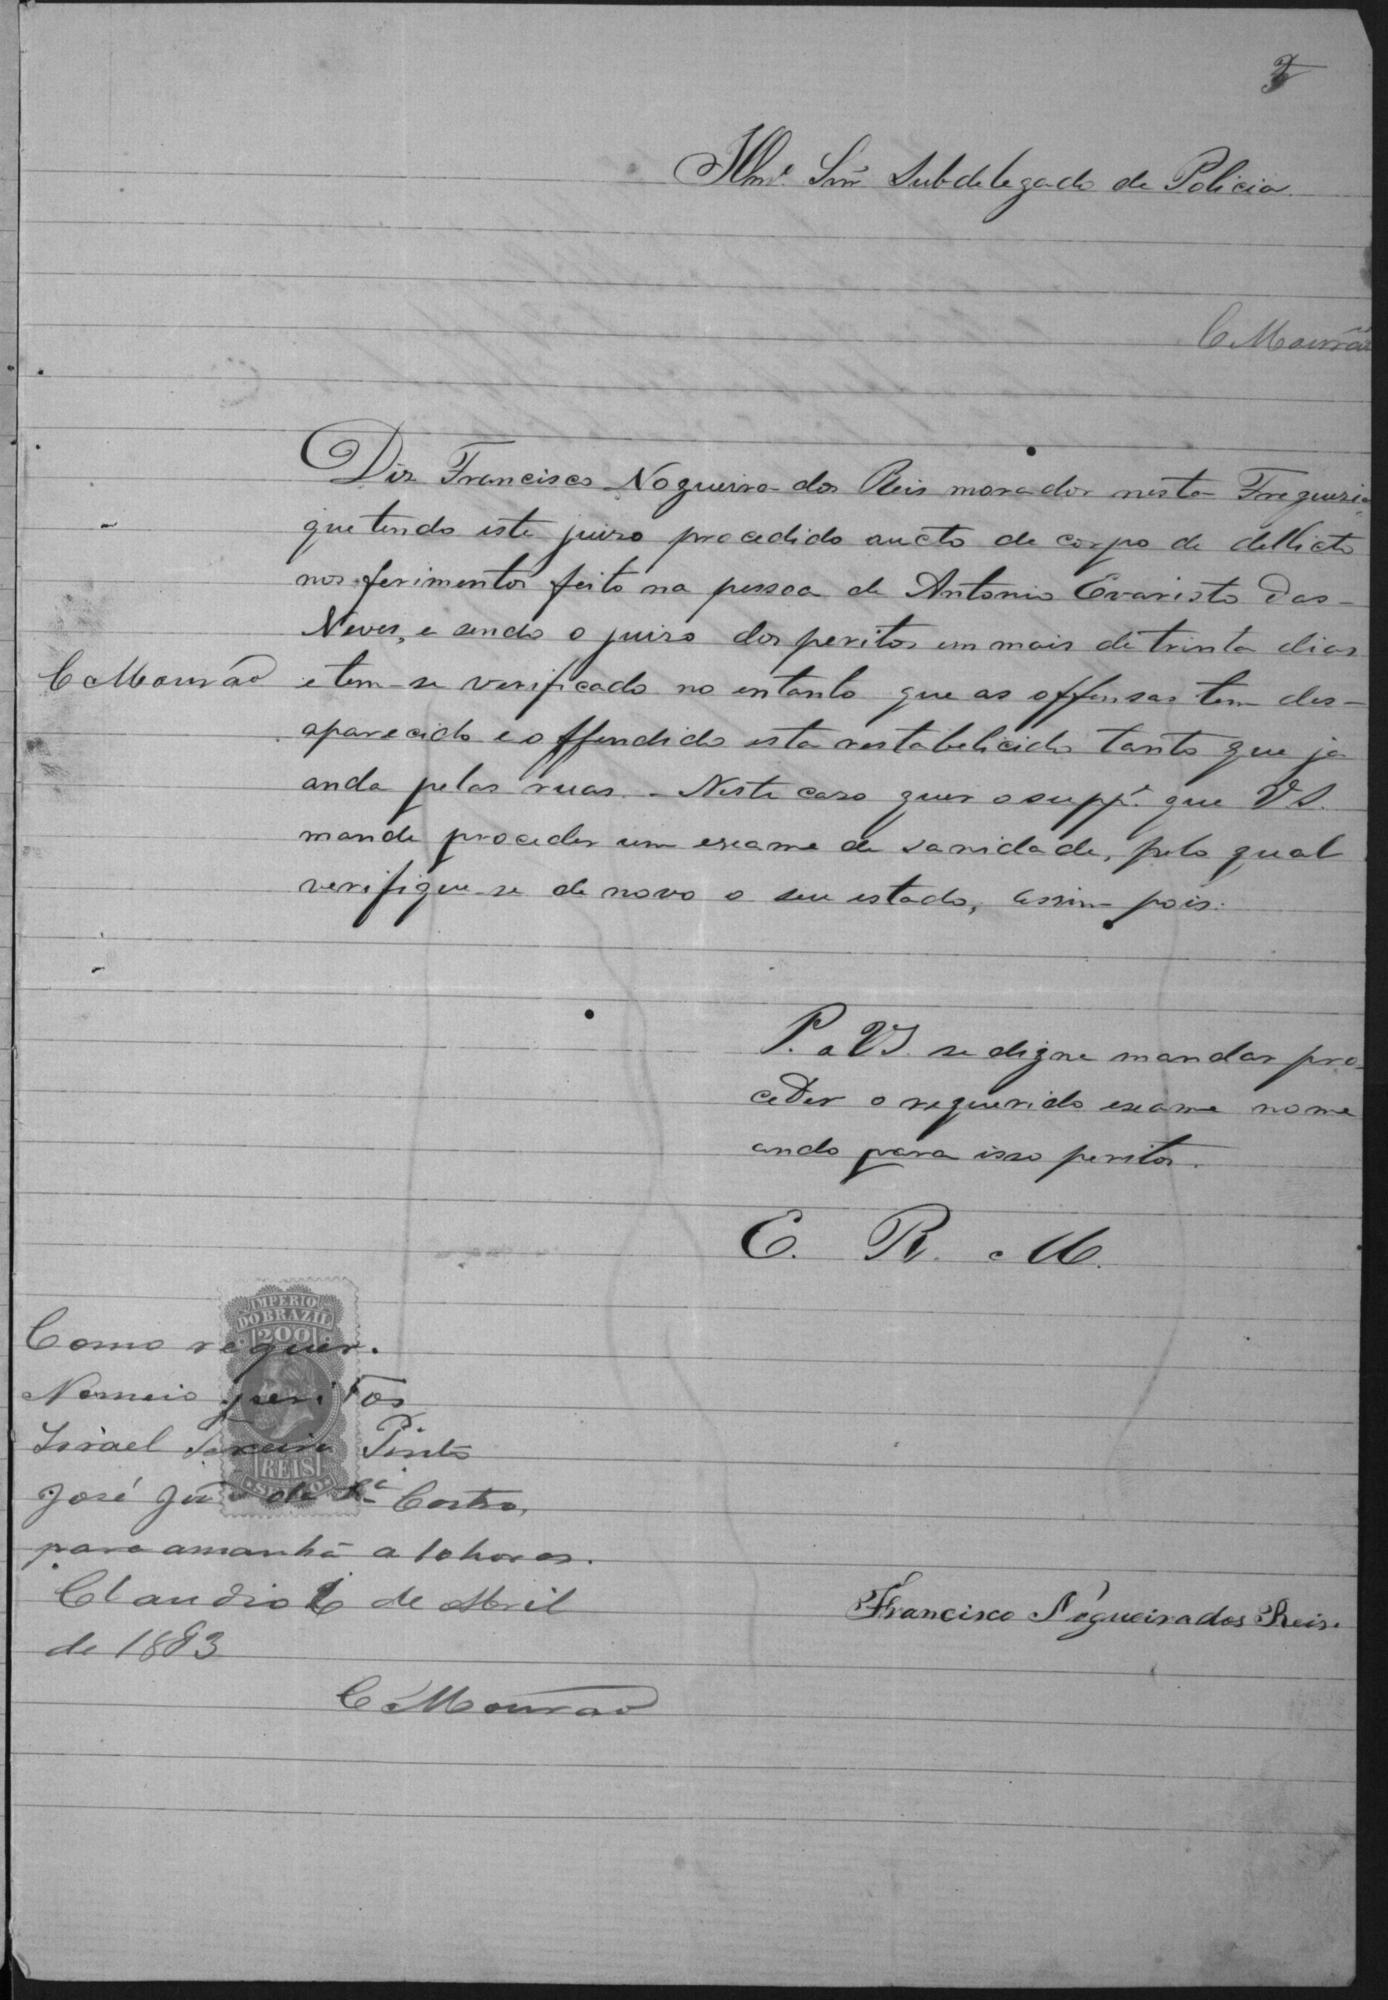 Illmo. Snr. Subdelegado de Policia.
C Mourão
Diz Francisco Nogueira dos Reis morador nesta Freguezia
que tendo este juizo procedido aucto de corpo de dellicto
nos ferimentos feito na pessoa de Antonio Evaristo das
Neves, e sendo o juizo dos peritos em mais de trinta dias
C Mourão
e tem-se verificado no entanto que as offensas tem des-
aparecido e o offendido esta restabelicido tanto que ja
anda pelas ruas. - Neste caso quer o suppe. que V S.
mande proceder um exame de sanidade, pelo qual
verifique-se de novo o seu estado, assim pois:
P. a V S. se digne mandar pro-
ceder o requerido exame nome
ando para isso peritos.
E. R. M.
IMPERIO
DO BRAZIL
200
REIS
Como requer.
Nomeio peritos
Israel Pinto
José da Castro,
para amanhã a 10 horas.
Claudio 6 de Abril
de 1883
C Mourão
Francisco Nogueira dos Reis.